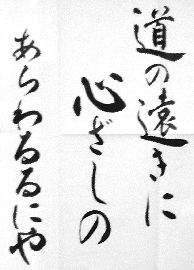 道の遠きに
心ざしの
あらわるるにや